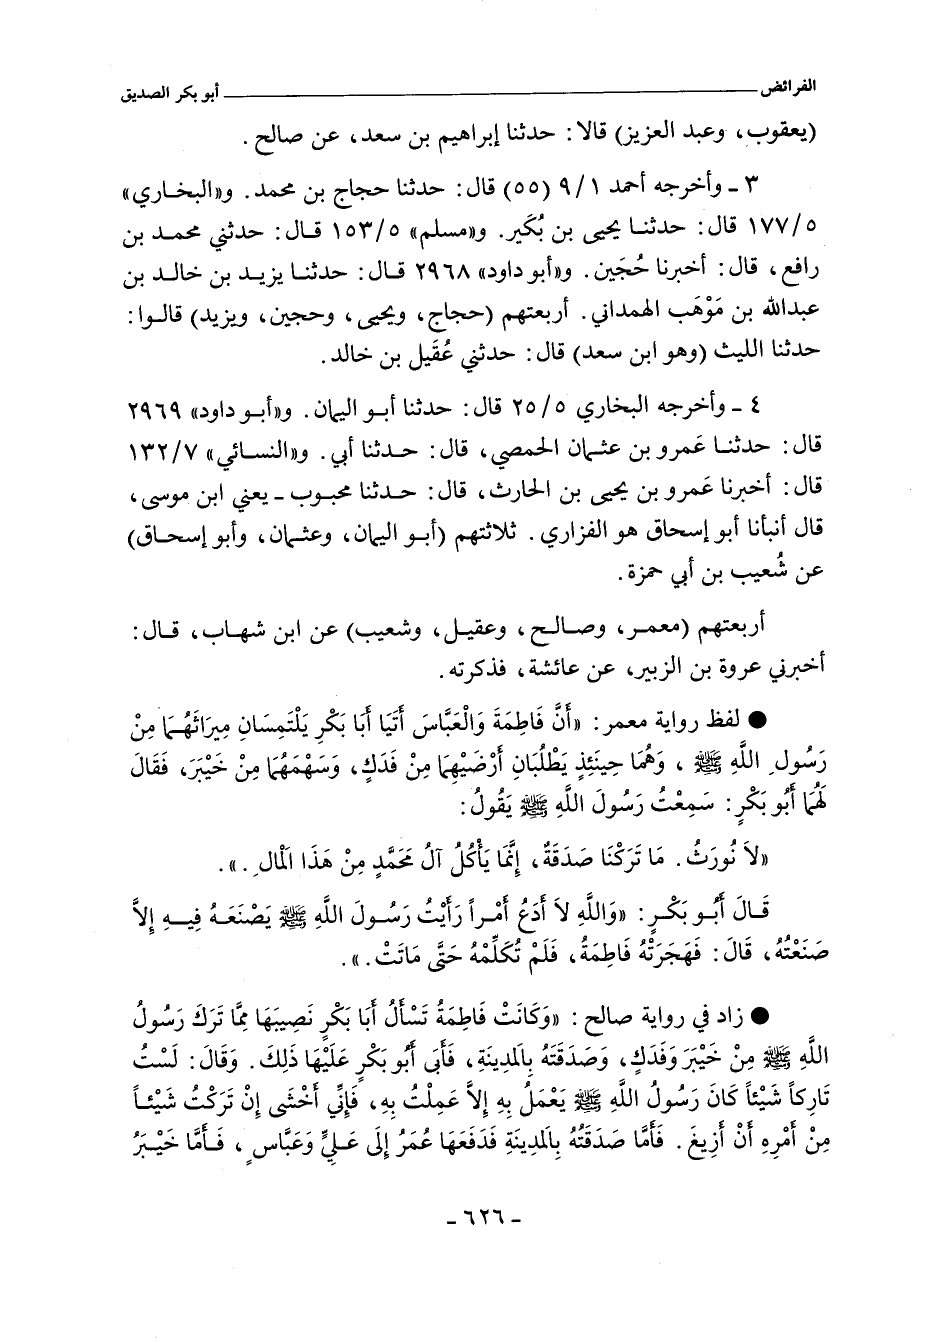 الفرائض ــــــــــــــــ أبو بكر الصديق
(يعقوب، وعبد العزيز) قالا: حدثنا إبراهيم بن سعد، عن صالح.
٣ ـ وأخرجه أحمد ٩/١ (٥٥) قال: حدثنا حجاج بن محمد. و«البخاري»
١٧٧/٥ قال: حدثنا يحيى بن بُكَير. و«مسلم» ١٥٣/٥ قال: حدثني محمد بن
رافع، قال: أخبرنا حُجَين. و«أبو داود» ٢٩٦٨ قال: حدثنا يزيد بن خالد بن
عبدالله بن مَوْهَب الهمداني. أربعتهم (حجاج، ويحيى، وحجين، ويزيد) قالوا:
حدثنا الليث (وهو ابن سعد) قال: حدثني عُقَيل بن خالد.
٤ ـ وأخرجه البخاري ٢٥/٥ قال: حدثنا أبو اليمان. و«أبو داود» ٢٩٦٩
قال: حدثنا عَمرو بن عثمان الحمصي، قال: حدثنا أبي. و«النسائي» ١٣٢/٧
قال: أخبرنا عَمرو بن يحيى بن الحارث، قال: حدثنا محبوب ـ يعني ابن موسى،
قال أنبأنا أبو إسحاق هو الفزاري. ثلاثتهم (أبو اليمان، وعثمان، وأبو إسحاق)
عن شُعيب بن أبي حمزة.
أربعتهم (معمر، وصالح، وعقيل، وشعيب) عن ابن شهاب، قال:
أخبرني عروة بن الزبير، عن عائشة، فذكرته.
● لفظ رواية معمر: «أَنَّ فَاطِمَةَ وَالْعَبَّاسَ أَتَيَا أَبَا بَكْرٍ يَلْتَمِسَانِ مِيرَاثَهُمَا مِنْ
رَسُولِ اللَّهِ ﷺ، وَهُمَا حِينَئِذٍ يَطْلُبَانِ أَرْضَيْهِمَا مِنْ فَدَكٍ، وَسَهْمَهُمَا مِنْ خَيْبَرَ، فَقَالَ
لَهُمَا أَبُو بَكْرٍ: سَمِعْتُ رَسُولَ اللَّهِ ﷺ يَقُولُ:
«لاَ نُورَثُ. مَا تَرَكْنَا صَدَقَةٌ، إِنَّمَا يَأْكُلُ آلُ مُحَمَّدٍ مِنْ هَذَا الْمَالِ.».
قَالَ أَبُو بَكْرٍ: «وَاللَّهِ لاَ أَدَعُ أَمْراً رَأَيْتُ رَسُولَ اللَّهِ ﷺ يَصْنَعَهُ فِيهِ إِلاَّ
صَنَعْتُهُ، قَالَ: فَهَجَرَتْهُ فَاطِمَةُ، فَلَمْ تُكَلِّمْهُ حَتَّى مَاتَتْ.».
● زاد في رواية صالح: «وَكَانَتْ فَاطِمَةُ تَسْأَلُ أَبَا بَكْرٍ نَصِيبَهَا مِمَّا تَرَكَ رَسُولُ
اللَّهِ ﷺ مِنْ خَيْبَرَ وَفَدَكٍ، وَصَدَقَتَهُ بِالْمَدِينَةِ، فَأَبَى أَبُو بَكْرٍ عَلَيْهَا ذَلِكَ. وَقَالَ: لَسْتُ
تَارِكاً شَيْئاً كَانَ رَسُولُ اللَّهِ ﷺ يَعْمَلُ بِهِ إِلاَّ عَمِلْتُ بِهِ، فَإِنِّي أَخْشَى إِنْ تَرَكْتُ شَيْئاً
مِنْ أَمْرِهِ أَنْ أَزِيغَ. فَأَمَّا صَدَقَتُهُ بِالْمَدِينَةِ فَدَفَعَهَا عُمَرُ إِلَى عَلِيٍّ وَعَبَّاسٍ، فَأَمَّا خَيْبَرُ
ـ ٦٢٦ ـ